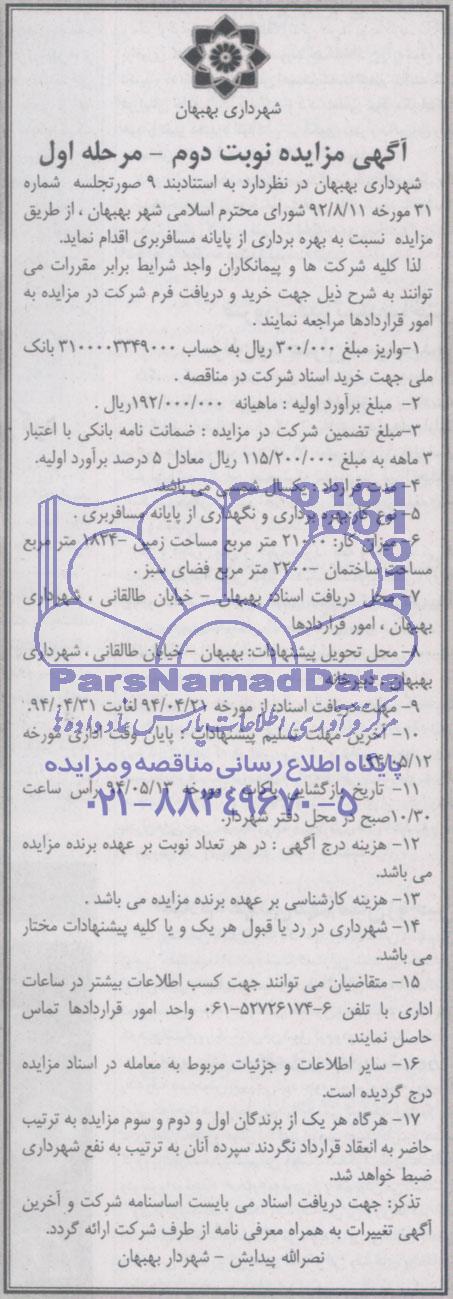 شهرداری بهبهان
آگهی مزایده نوبت دوم - مرحله اول
شهرداری بهبهان در نظردارد به استنادبند ۹ صورتجلسه شماره
۳۱ مورخه ۹۲/۸/۱۱ شورای محترم اسلامی شهر بهبهان ، از طریق
مزایده نسبت به بهره برداری از پایانه مسافربری اقدام نماید.
لذا کلیه شرکت ها و پیمانکاران واجد شرایط برابر مقررات می
توانند به شرح ذیل جهت خرید و دریافت فرم شرکت در مزایده به
امور قراردادها مراجعه نمایند .
۱-واریز مبلغ ۳۰۰/۰۰۰ ریال به حساب ۳۱۰۰۰۰۳۳۴۹۰۰۰ بانک
ملی جهت خرید اسناد شرکت در مناقصه .
۲- مبلغ برآورد اولیه : ماهیانه ۱۹۲/۰۰۰/۰۰۰ریال .
۳-مبلغ تضمین شرکت در مزایده : ضمانت نامه بانکی با اعتبار
۳ ماهه به مبلغ ۱۱۵/۲۰۰/۰۰۰ ریال معادل ۵ درصد برآورد اولیه.
۴- مدت قرارداد : یکسال شمسی می باشد.
۵- نوع کار:بهره برداری و نگهداری از پایانه مسافربری .
۶- میزان کار: ۲۱۰۰۰ متر مربع مساحت زمین -۱۸۳۴ متر مربع
مساحت ساختمان -۲۲۰۰ متر مربع فضای سبز .
۷- محل دریافت اسناد: بهبهان - خیابان طالقانی ، شهرداری
بهبهان ، امور قراردادها
۸- محل تحویل پیشنهادات: بهبهان - خیابان طالقانی ، شهرداری
بهبهان - دبیرخانه
ParsNamadData
۹- مهلت دریافت اسناد: از مورخه ۹۴/۰۴/۲۱ لغایت ۹۴/۰۴/۳۱.
مرکز فرآوری اطلاعات پارس نماد داده ها
۱۰- آخرین مهلت تسلیم پیشنهادات : پایان وقت اداری مورخه
۹۴/۰۵/۱۲
پایگاه اطلاع رسانی مناقصه و مزایده
۱۱- تاریخ بازگشایی پاکات : مورخه ۹۴/۰۵/۱۳ رأس ساعت
۰۲۱-۸۸۳۴۹۶۷۰-۵
۱۰/۳۰صبح در محل دفتر شهردار.
۱۲- هزینه درج آگهی : در هر تعداد نوبت بر عهده برنده مزایده
می باشد.
۱۳- هزینه کارشناسی بر عهده برنده مزایده می باشد .
۱۴- شهرداری در رد یا قبول هر یک و یا کلیه پیشنهادات مختار
می باشد.
۱۵- متقاضیان می توانند جهت کسب اطلاعات بیشتر در ساعات
اداری با تلفن ۶-۰۶۱-۵۲۷۲۶۱۷۴ واحد امور قراردادها تماس
حاصل نمایند.
۱۶- سایر اطلاعات و جزئیات مربوط به معامله در اسناد مزایده
درج گردیده است.
۱۷- هرگاه هر یک از برندگان اول و دوم و سوم مزایده به ترتیب
حاضر به انعقاد قرارداد نگردند سپرده آنان به ترتیب به نفع شهرداری
ضبط خواهد شد.
تذکر: جهت دریافت اسناد می بایست اساسنامه شرکت و آخرین
آگهی تغییرات به همراه معرفی نامه از طرف شرکت ارائه گردد.
نصرالله پیدایش - شهردار بهبهان